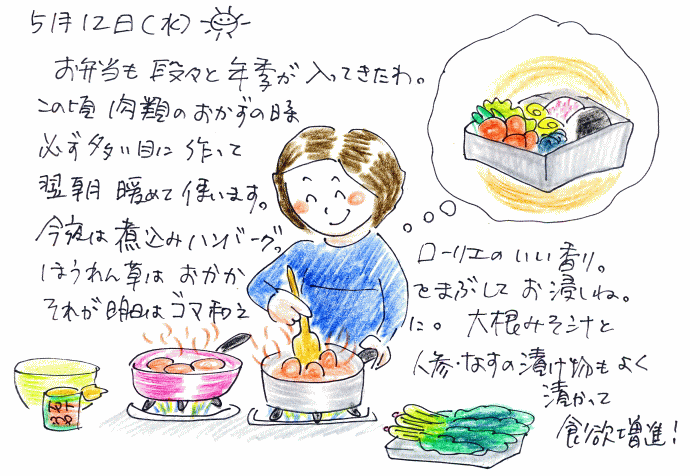 5月12日(水)
お弁当も 段々と 年季が 入ってきたわ。
この頃 肉類の おかずの時
必ず 多い目に 作って
翌朝 暖めて 使います。
今夜は 煮込みハンバーグ。
ローリエの いい香り。
ほうれん草は おかか
をまぶして お浸しね。
それが 明日は ゴマ和え
に。 大根みそ汁と
人参・なすの 漬け物もよく
漬かって
食欲増進!